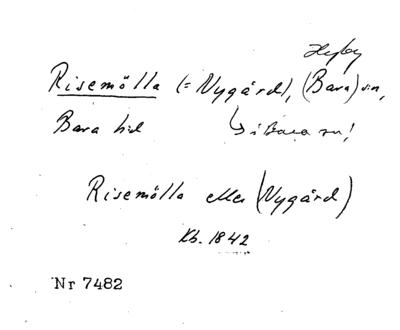 Hyby
Risemölla (= Nygård), (Bara) sn,
Bara hd ↳ i Bara sn!
Risemölla eller (Nygård)
Kb. 1842
Nr 7482